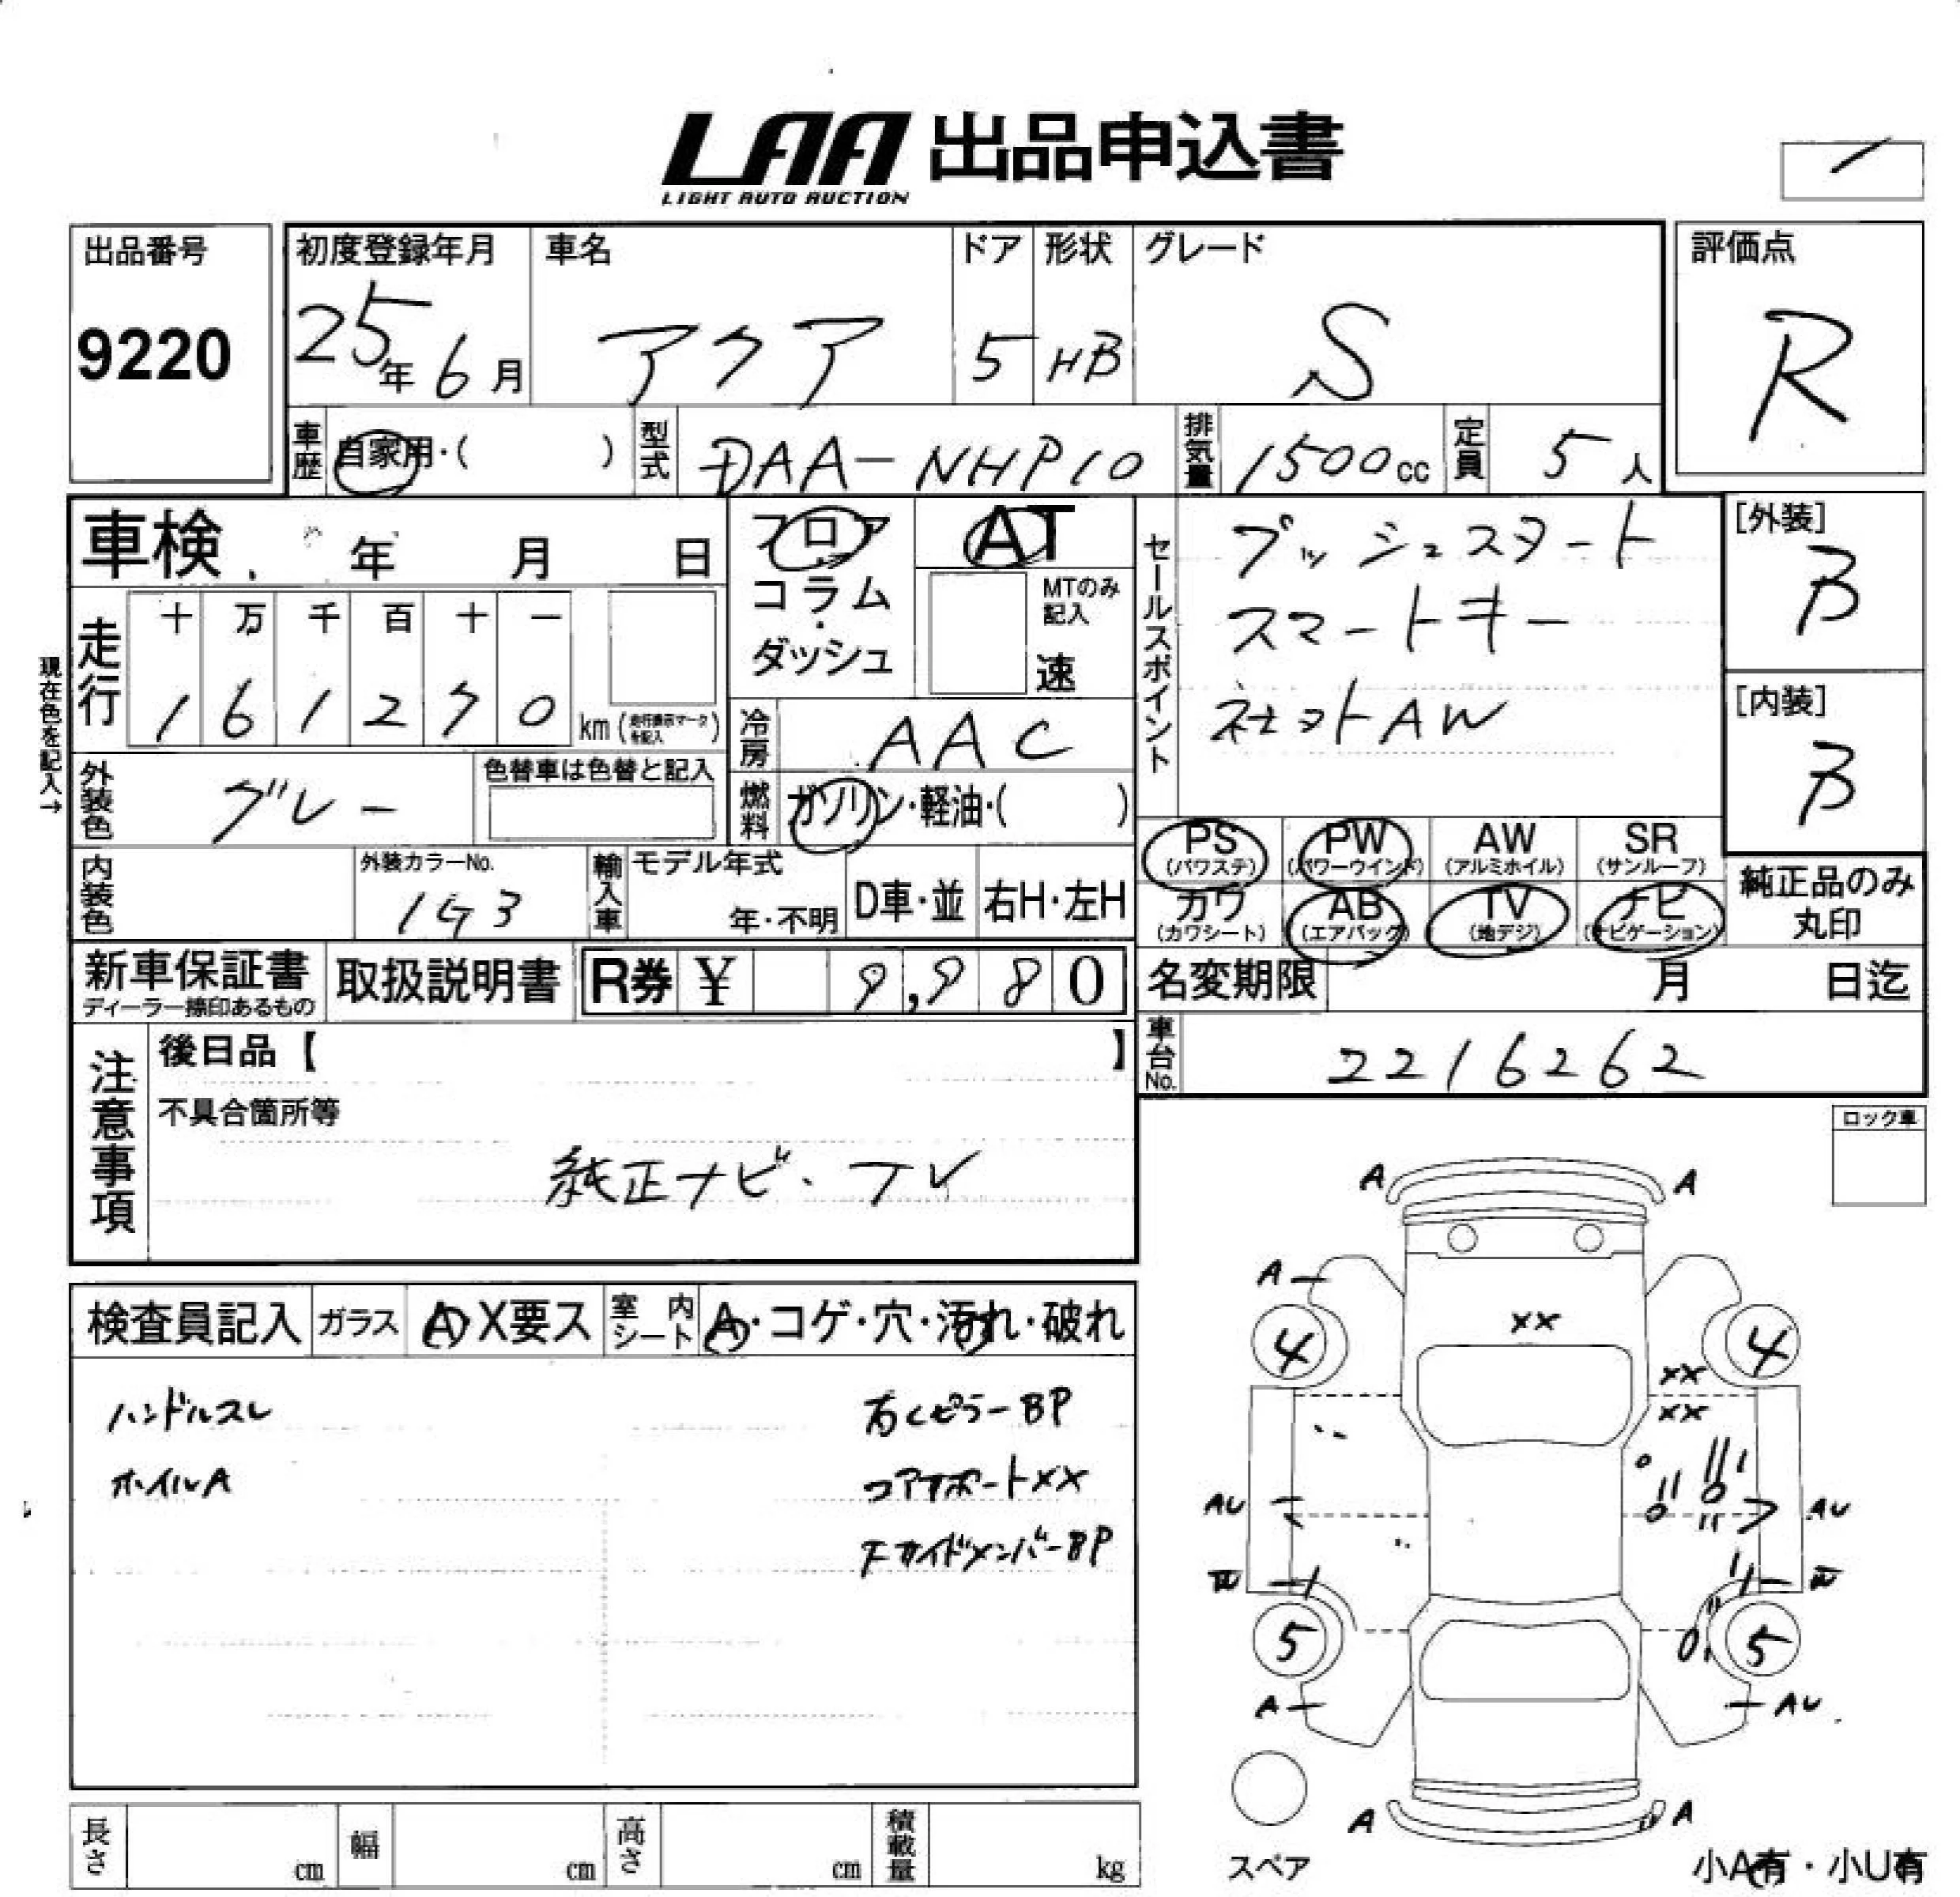 LAA 出品申込書
LIGHT AUTO AUCTION
出品番号
9220
初度登録年月
25年6月
車名
アクア
ドア
5
形状
HB
グレード
S
評価点
R
車歴
自家用・( )
型式
DAA-NHP10
排気量
1500cc
定員
5人
車検 年 月 日
フロア
コラム
・
ダッシュ
AT
MTのみ
記入
速
セールスポイント
プッシュスタート
スマートキー
社外AW
[外装]
B
[内装]
B
現在色を記入→
走行
十 万 千 百 十 一
1 6 1 2 7 0
km (走行表示マークを記入)
冷房
AAC
燃料
ガソリン・軽油・( )
外装色
グレー
色替車は色替と記入
内装色
外装カラーNo.
1G3
輸入車
モデル年式
年・不明
D車・並
右H・左H
PS
(パワステ)
PW
(パワーウインド)
AW
(アルミホイル)
SR
(サンルーフ)
カワ
(カワシート)
AB
(エアバッグ)
TV
(地デジ)
ナビ
(ナビゲーション)
純正品のみ
丸印
新車保証書
ディーラー捺印あるもの
取扱説明書
R券 ¥ 9,980
名変期限 月 日迄
車台No.
2216262
注意事項
後日品【 】
不具合箇所等
純正ナビ・TV
ロック車
検査員記入
ガラス
A・X要ス
室内シート
A・コゲ・穴・汚れ・破れ
ハンドルスレ
ホイルA
右CピラーBP
コアサポートXX
FサイドメンバーBP
A A
A
XX
4 4
XX
XX
AU AU
5 5
A AU
A A
スペア
小A有・小U有
長さ cm
幅 cm
高さ cm
積載量 kg